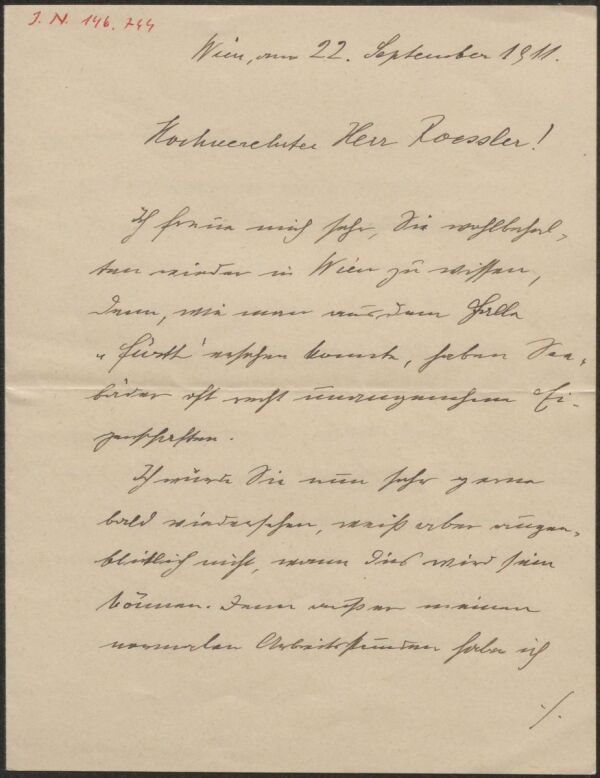 J. N. 146.744
Wien, am 22. September 1911.
Hochverehrter Herr Roessler!
Ich freue mich sehr, Sie wohlbehal-
ten wieder in Wien zu wissen,
denn, wie man aus dem Falle
„Fürth“ ersehen konnte, haben See-
bäder oft recht unangenehme Ei-
genschaften.
Ich würde Sie nun sehr gerne
bald wiedersehen, weiß aber augen-
blicklich nicht, wann dies wird sein
können. Denn außer meinen
normalen Arbeitsstunden habe ich
./.